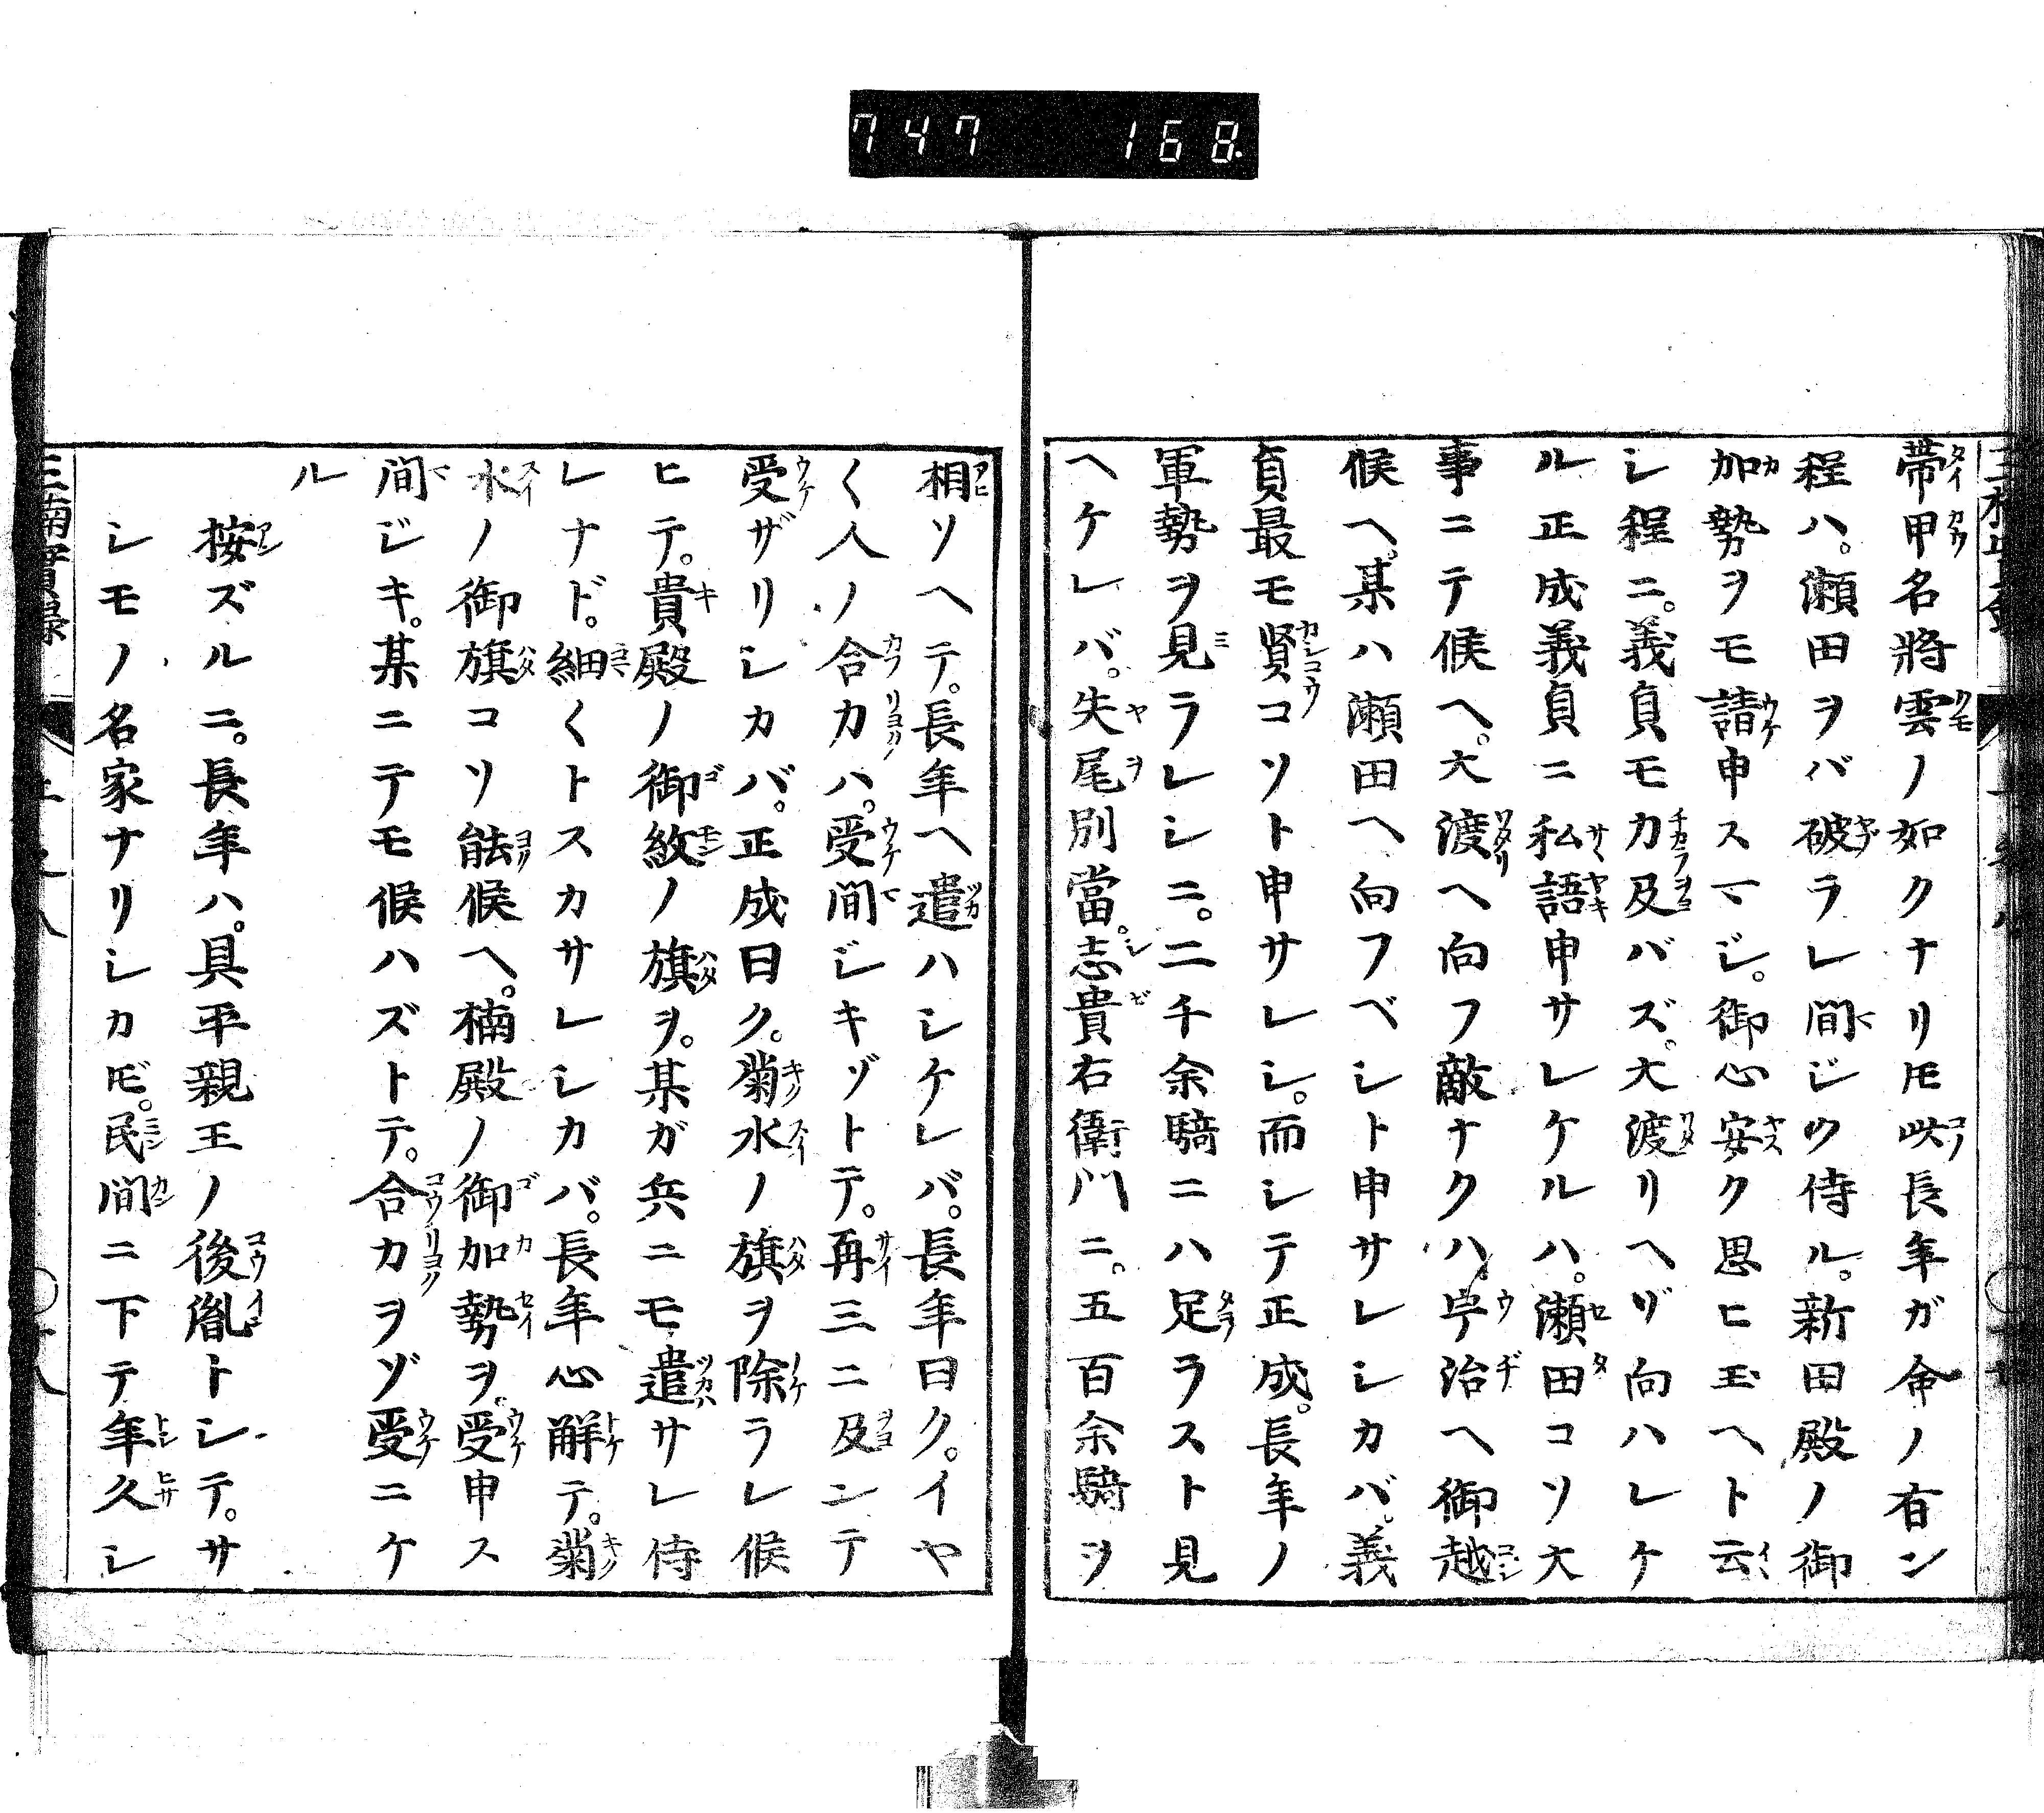 747 168.
帶甲名將雲ノ如クナリ𪜈此長年ガ命ノ有ン
程ハ。瀬田ヲバ破ラレ間ジク侍ル。新田殿ノ御
加勢ヲモ請申スマジ。御心安ク思ヒ玉ヘト云
シ程ニ。義貞モ力及バズ。大渡リヘゾ向ハレケ
ル正成義貞ニ私語申サレケルハ。瀬田コソ大
事ニテ候ヘ。大渡ヘ向フ敵ナクハ。宇治ヘ御越
候ヘ。某ハ瀬田ヘ向フベシト申サレシカバ。義
貞最モ賢コソト申サレシ。而シテ正成。長年ノ
軍勢ヲ見ラレシニ。二千余騎ニハ足ラスト見
ヘケレバ。失尾別當。志貴右衛門ニ。五百余騎ヲ
相ソヘテ。長年ヘ遣ハシケレバ。長年曰ク。イヤ
〱人ノ合力ハ。受間ジキゾトテ。再三ニ及ンテ
受ザリシカバ。正成曰ク。菊水ノ旗ヲ除ラレ候
ヒテ。貴殿ノ御紋ノ旗ヲ。某ガ兵ニモ遣サレ侍
レナド。細〱トスカサレシカバ。長年心解テ。菊
水ノ御旗コソ能候ヘ。楠殿ノ御加勢ヲ。受申ス
間ジキ。某ニテモ候ハズトテ。合力ヲゾ受ニケ
ル
按ズルニ。長年ハ。具平親王ノ後胤トシテ。サ
シモノ名家ナリシカ𪜈。民間ニ下テ年久シ
三楠實録